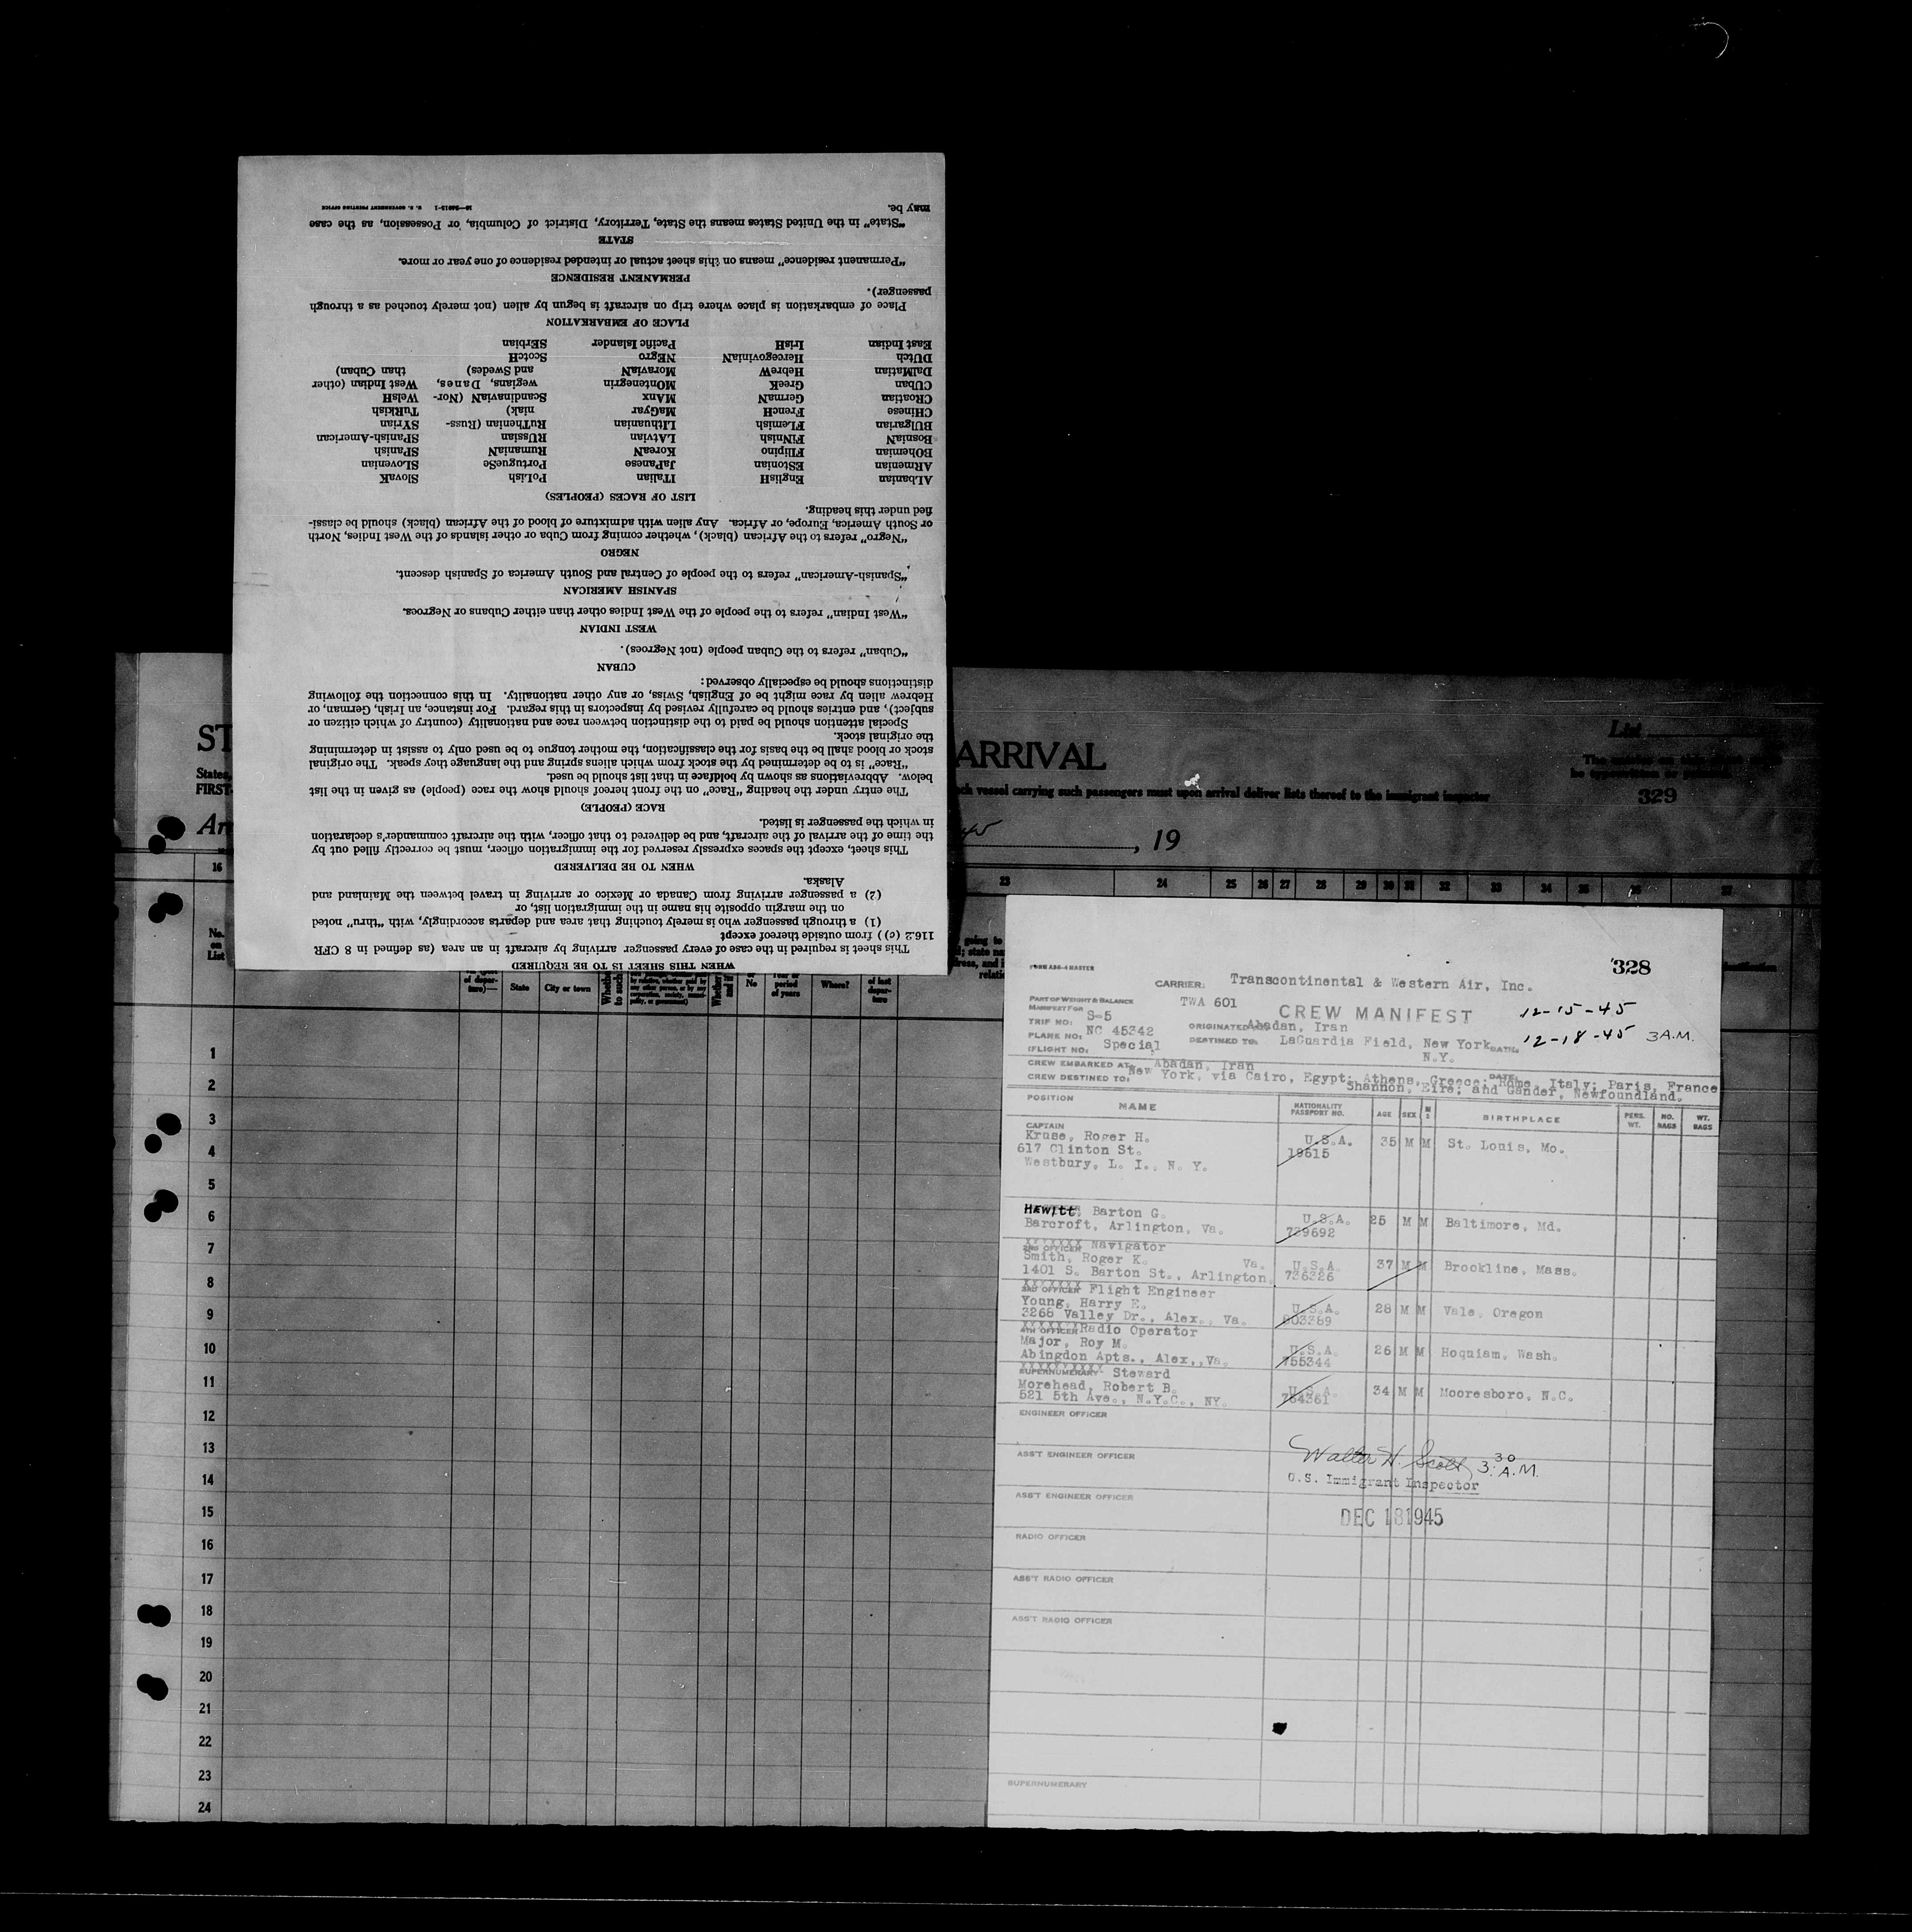 WHEN THIS SHEET IS TO BE REQUIRED
This sheet is required in the case of every passenger arriving by aircraft in an area (as defined in 8 CFR
116.2 (c)) from outside thereof except
(1) a through passenger who is merely touching that area and departs accordingly, with "thru" noted
on the margin opposite his name in the immigration list, or
(2) a passenger arriving from Canada or Mexico or arriving in travel between the Mainland and
Alaska.
WHEN TO BE DELIVERED
This sheet, except the spaces expressly reserved for the immigration officer, must be correctly filled out by
the time of the arrival of the aircraft, and be delivered to that officer, with the aircraft commander's declaration
in which the passenger is listed.
RACE (PEOPLE)
The entry under the heading "Race" on the front hereof should show the race (people) as given in the list
below. Abbreviations as shown by boldface in that list should be used.
"Race" is to be determined by the stock from which aliens spring and the language they speak. The original
stock or blood shall be the basis for the classification, the mother tongue to be used only to assist in determining
the original stock.
Special attention should be paid to the distinction between race and nationality (country of which citizen or
subject), and entries should be carefully revised by inspectors in this regard. For instance, an Irish, German, or
Hebrew alien by race might be of English, Swiss, or any other nationality. In this connection the following
distinctions should be especially observed:
CUBAN
"Cuban" refers to the Cuban people (not Negroes).
WEST INDIAN
"West Indian" refers to the people of the West Indies other than either Cubans or Negroes.
SPANISH AMERICAN
"Spanish-American" refers to the people of Central and South America of Spanish descent.
NEGRO
"Negro" refers to the African (black), whether coming from Cuba or other islands of the West Indies, North
or South America, Europe, or Africa. Any alien with admixture of blood of the African (black) should be classi-
fied under this heading.
LIST OF RACES (PEOPLES)
ALbanian EnglisH ITalian PoLish SlovaK
ARmenian EStonian JaPanese PortugueSe SLovenian
BOhemian FIlipino KoreaN RumaniaN SPanish
BosniaN FINnish LATvian RUssian SPanish-American
BUlgarian FLemish LIthuanian RuThenian (Russ- SYrian
CHinese FrencH MaGyar niak) TuRkish
CRoatian GermaN MAnx ScandinaviaN (Nor- WelsH
CUban GreeK MOntenegrin wegians, Danes, West Indian (other
DalMatian HebreW MoraviaN and Swedes) than Cuban)
DUtch HercegoviniaN NEgro ScotcH
East Indian IrisH Pacific Islander SErbian
PLACE OF EMBARKATION
Place of embarkation is place where trip on aircraft is begun by alien (not merely touched as a through
passenger).
PERMANENT RESIDENCE
"Permanent residence" means on this sheet actual or intended residence of one year or more.
STATE
"State" in the United States means the State, Territory, District of Columbia, or Possession, as the case
may be.
U. S. GOVERNMENT PRINTING OFFICE
ST
ARRIVAL
List
States,
FIRST-
ch vessel carrying such passengers must upon arrival deliver lists thereof to the immigrant inspector
329
Ar
, 19
16 23 24 25 26 27 28 29 30 31 32 33 34 35 36 37
No.
on
List
State City or town
No
period
of years
Where?
of last
depar-
ture
1
2
3
4
5
6
7
8
9
10
11
12
13
14
15
16
17
18
19
20
21
22
23
24
328
FORM A86-4 MASTER
CARRIER: Transcontinental & Western Air, Inc.
PART OF WEIGHT & BALANCE
MANIFEST FOR
TWA 601
CREW MANIFEST
12-15-45
TRIP NO: S-5
ORIGINATED Abadan, Iran
PLANE NO: NC 45342
DESTINED TO: LaGuardia Field, New York
N.Y.
DATE: 12-18-45 3 A.M.
FLIGHT NO: Special
CREW EMBARKED AT: Abadan, Iran
DATE:
CREW DESTINED TO: New York, via Cairo, Egypt; Athens, Greece; Rome, Italy; Paris, France
Shannon, Eire; and Gander, Newfoundland.
POSITION NAME NATIONALITY PASSPORT NO. AGE SEX M S BIRTHPLACE PERS. WT. NO. BAGS WT. BAGS
CAPTAIN
Kruse, Roger H. U.S.A. 35 M M St. Louis, Mo.
617 Clinton St. 19615
Westbury, L. I., N. Y.
Hewitt, Barton G. U.S.A. 25 M M Baltimore, Md.
Barcroft, Arlington, Va. 739692
2ND OFFICER Navigator
Smith, Roger K. Va. U.S.A. 37 M M Brookline, Mass.
1401 S. Barton St., Arlington. 736326
3RD OFFICER Flight Engineer
Young, Harry E. U.S.A. 28 M M Vale, Oregon
3266 Valley Dr., Alex., Va. 603389
4TH OFFICER Radio Operator
Major, Roy M. U.S.A. 26 M M Hoquiam, Wash.
Abingdon Apts., Alex., Va. 755344
SUPERNUMERARY Steward
Morehead, Robert B. U.S.A. 34 M M Mooresboro, N.C.
521 5th Ave., N.Y.C., NY. 764361
ENGINEER OFFICER
ASS'T ENGINEER OFFICER
Walter H. Scott 3:30 A.M.
U.S. Immigrant Inspector
ASS'T ENGINEER OFFICER
DEC 18 1945
RADIO OFFICER
ASS'T RADIO OFFICER
ASS'T RADIO OFFICER
SUPERNUMERARY